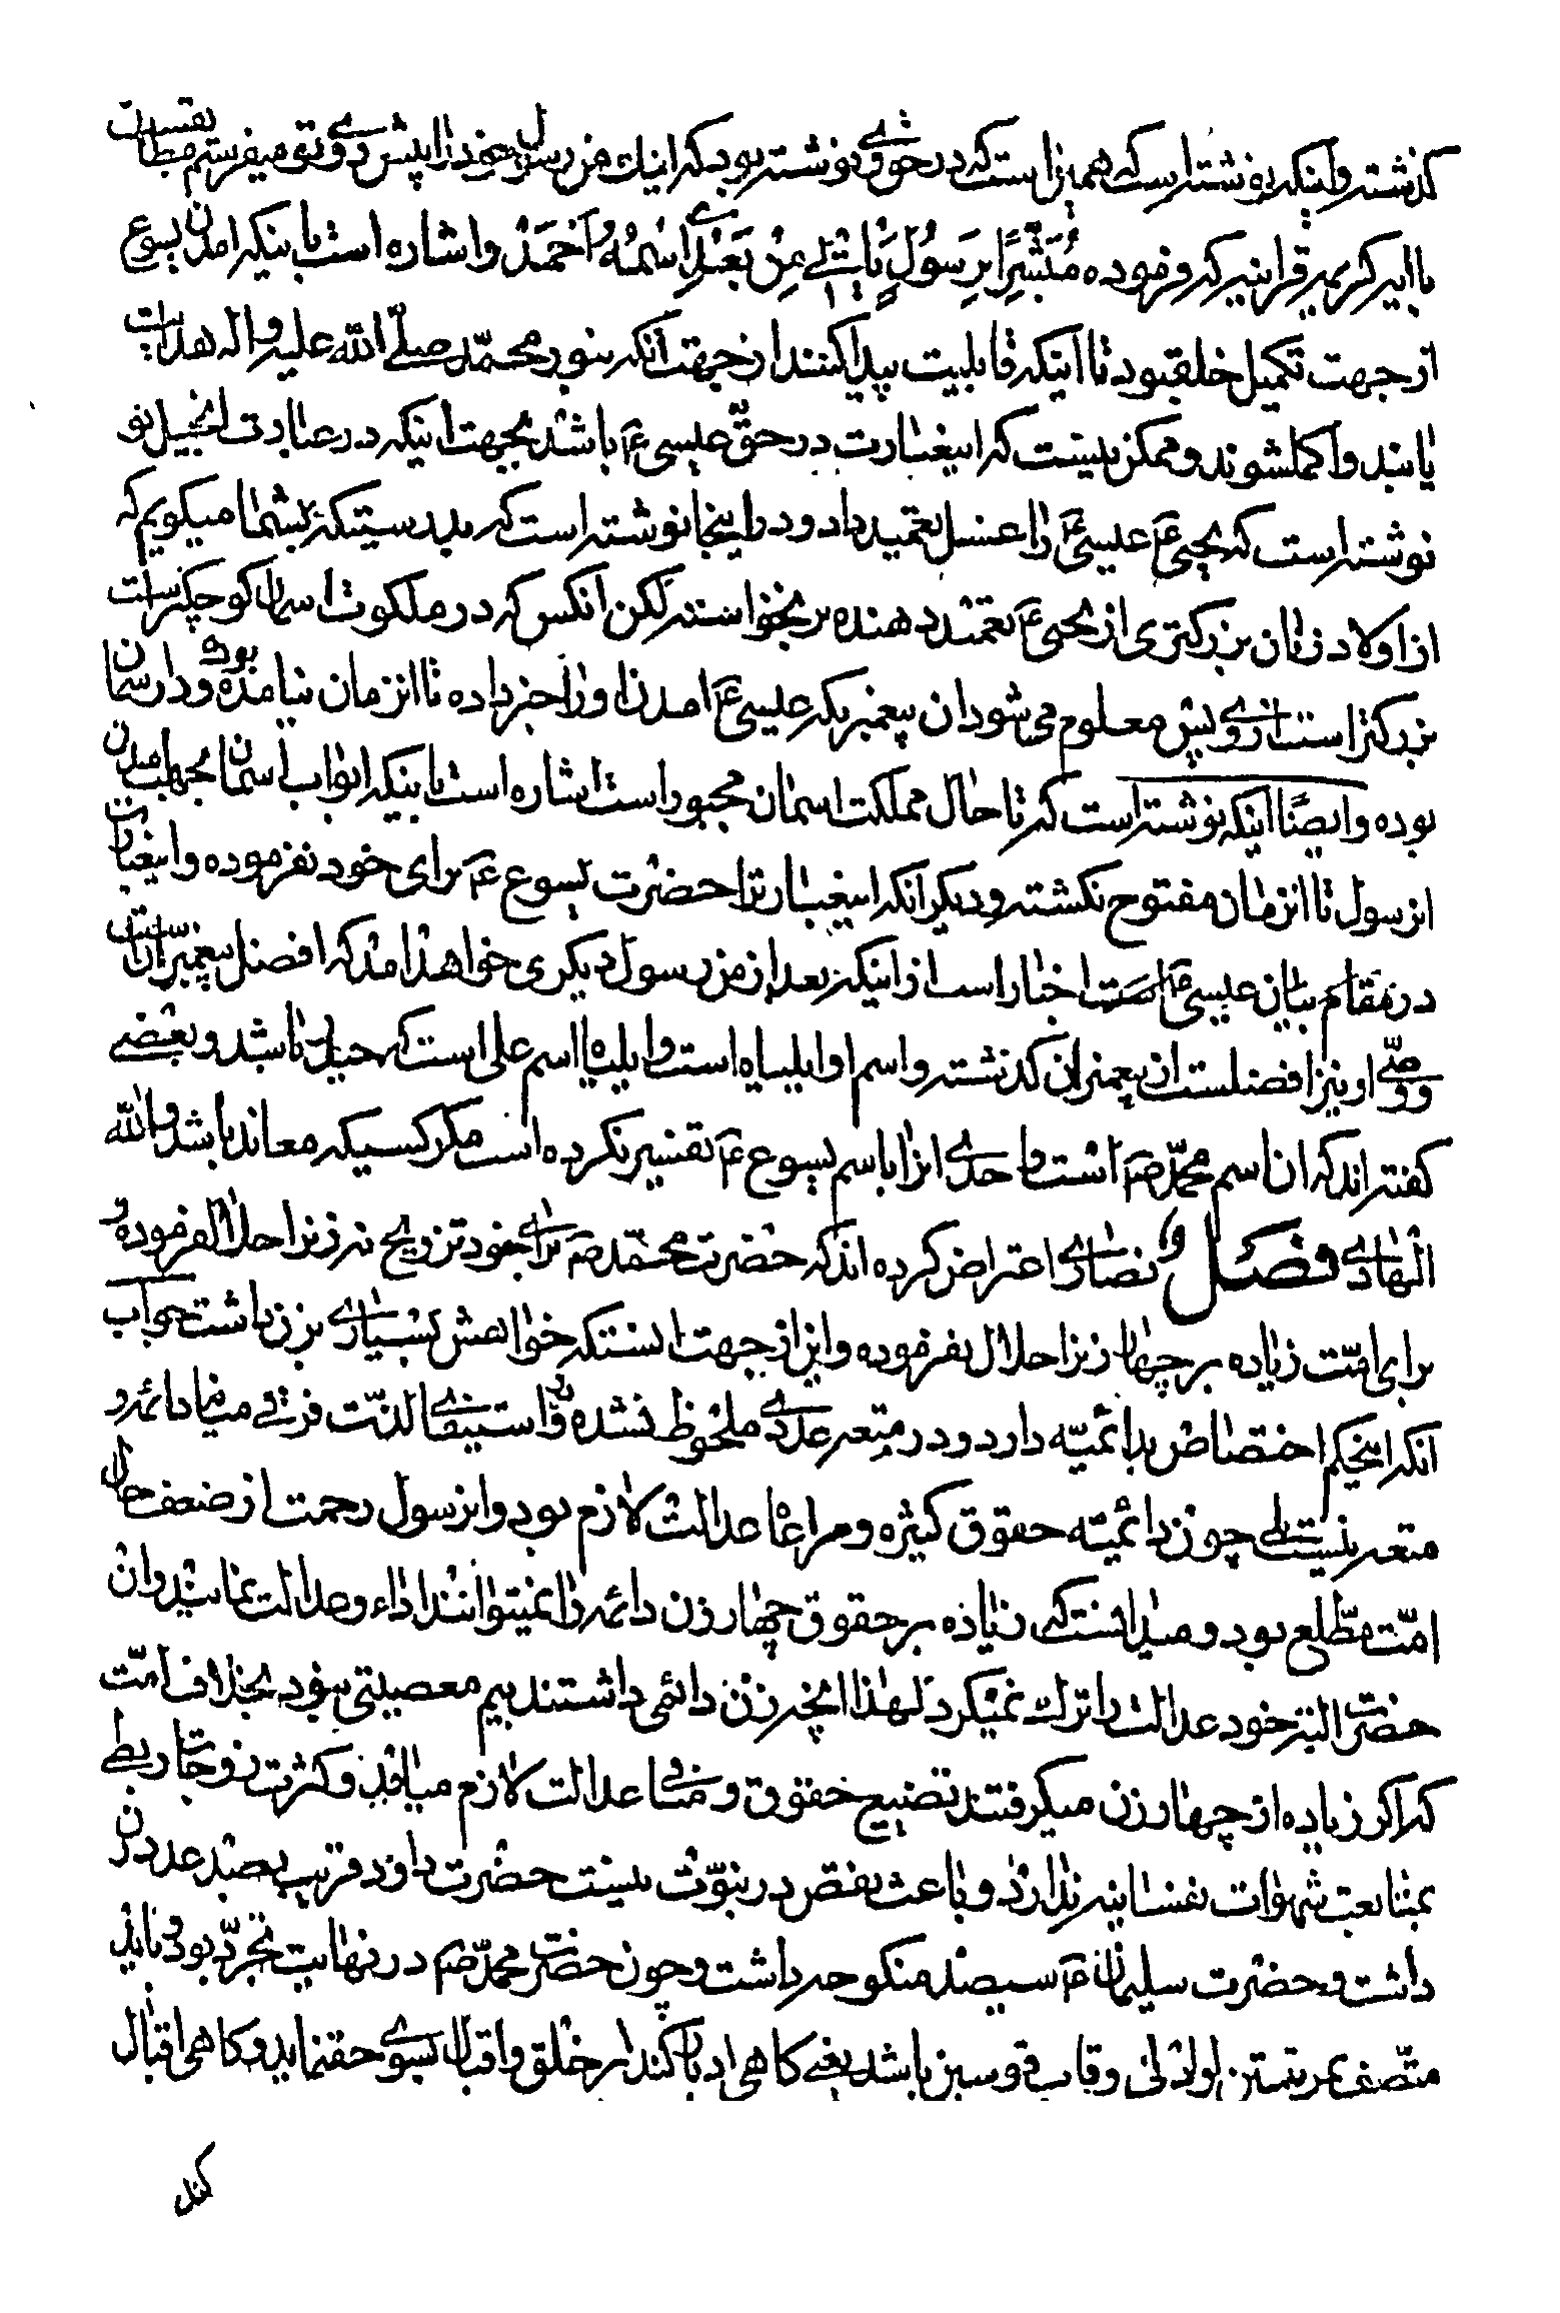 گذشته و اینکه نوشته است که همین است که در حق وی نوشته بود که اینک من رسول خود را پیش روی تو میفرستم مطابقست
با ایه کریمه قرانیه که فرموده مُبَشِّراً بِرَسُولٍ یَأتی مِنْ بَعْدِی اسْمُهُ اَحْمَدْ و اشاره است باینکه امدن یسوع
از جهت تکمیل خلق بود تا اینکه قابلیت پیدا کنند از جهت آنکه بنور محمّد صلّی الله علیه و اله هدایت
یابند و اکمل شوند و ممکن نیست که اینعبارت در حقّ عیسی ع باشد بجهت اینکه در عبارت انجیل نو
نوشته است که یحیی ع عیسی ع را غسل تعمید داد و در اینجا نوشته است که بدرستیکه بشما میگویم که
از اولاد زنان بزرگتری از یحیی ع تعمید دهنده بر نخواسته لکن انکس که در ملکوت اسمان کوچکتر است
بزرگتر است از وی پس معلوم می شود ان پیغمبریکه عیسی ع امدن او را خبر داده تا انزمان نیامده بوده و در اسمان
بوده و ایضًا اینکه نوشته است که تا حال مملکت اسمان مجبور است اشاره است باینکه ابواب اسمان بجهت امدن
انرسول تا انزمان مفتوح نگشته و دیگر انکه اینعبارترا حضرت یسوع ع برای خود نفرموده و اینعبارت
در مقام بیان عیسی ع است اخبار است از اینکه بعد از من رسول دیگری خواهد امد که افضل پیغمبرانست
و وصّی او نیز افضلست از پیغمبران گذشته و اسم او ایلیاه است و ایلیا اسم علی است که حیدر باشد و بعضی
گفته اند که ان اسم محمّد ص است و احدی انرا باسم یسوع ع تفسیر نکرده است مگر کسیکه معاند باشد و الله
الهادی فصل و نصاری اعتراض کرده اند که حضرت محمّد ص برای خود تزویج نه زنرا حلال فرموده و
برای امّت زیاده بر چهار زنرا حلال نفرموده و این از جهت انستکه خواهش بسیاری بزن داشت جواب
آنکه اینحکم اختصاص بدائمیّه دارد و در متعه عددی ملحوظ نشده و در استیفای لذّت فرقی میانه دائمه و
متعه نیست بلی چون دائمیّه حقوق کثیره و مراعات عدالت لازم بود و انرسول رحمت از ضعف حال
امّت مطّلع بود و میدانست که زیاده بر حقوق چهار زن دائمه را نمیتوانند اداء و عدالت نمایند و ان
حضرت البته خود عدالت را ترک نمیکرد لهذا انچه زن دائمی داشتند بیم معصیتی نبود بخلاف امّت
که اگر زیاده از چهار زن میگرفتند تضییع حقوق و منافی عدالت لازم میافتد و کثرت زوجات ربطی
بمتابعت شهوات نفسانیه ندارد و باعث نقص در نبوّت نیست حضرت داود قریب بصد عدد زن
داشت و حضرت سلیمان ع سیصد منکوحه داشت و چون حضرت محمّد ص در نهایت تجرّد بود و باید
متّصف بمرتبتین او ادنی و قاب قوسین باشد یعنی گاهی ادبار کند از خلق و اقبال بسوی حق نماید و گاهی اقبال
کند